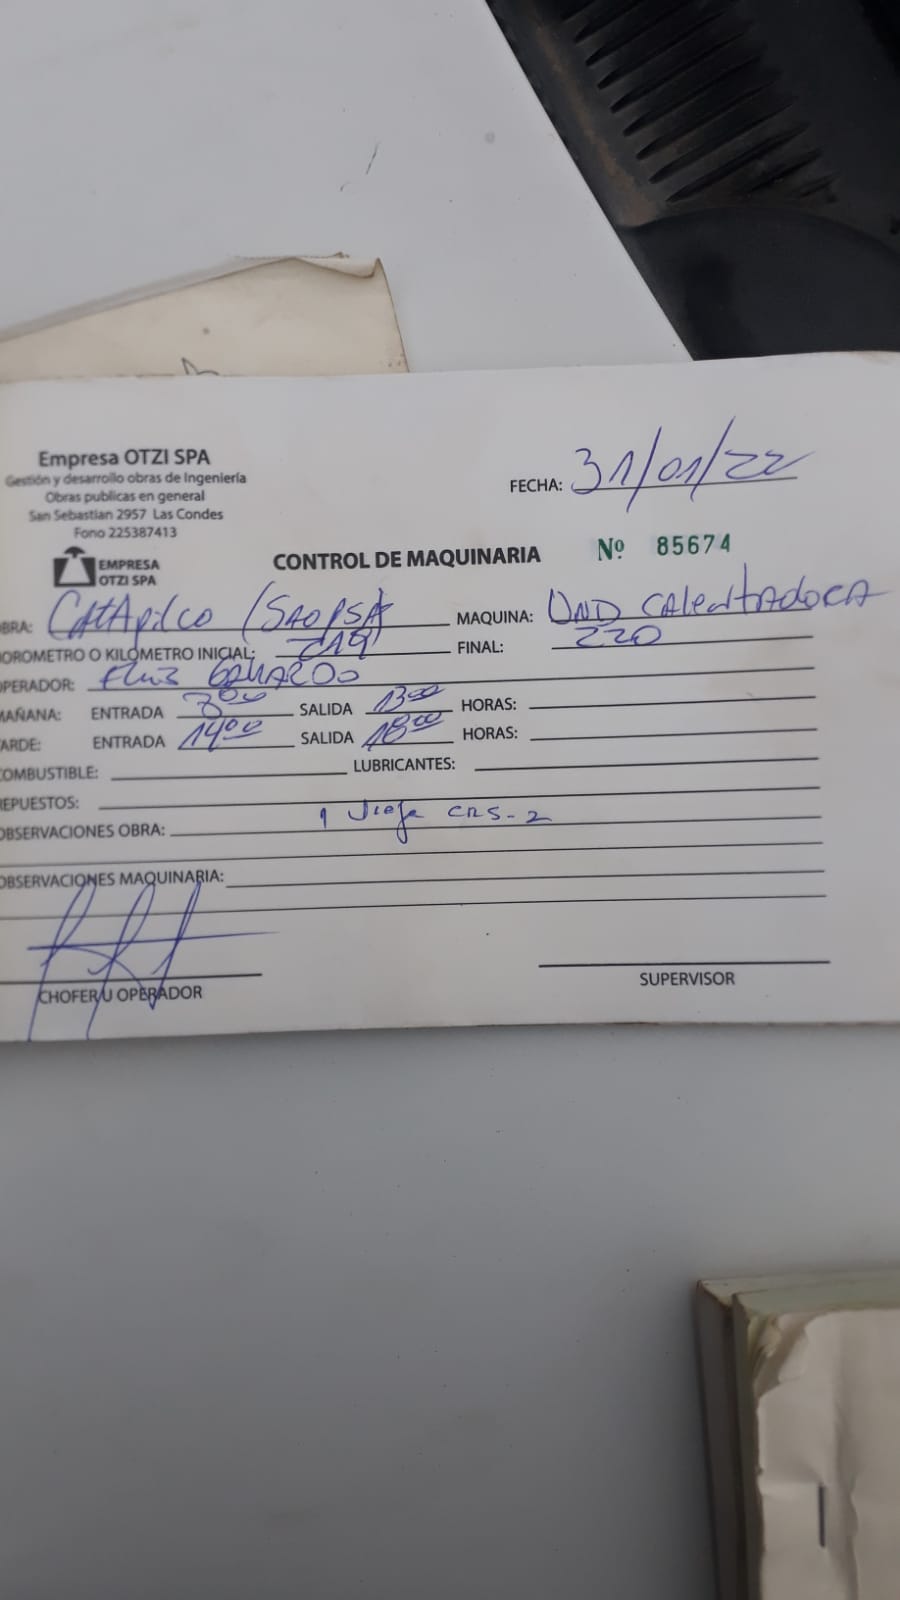 Empresa OTZI SPA
Gestión y desarrollo obras de Ingeniería
Obras publicas en general
San Sebastian 2957 Las Condes
Fono 225387413
EMPRESA
OTZI SPA
FECHA: 31/01/22
CONTROL DE MAQUINARIA Nº 85674
OBRA: CATAPilco (SAOPSA) MAQUINA: UND CAlentADoRA
HOROMETRO O KILOMETRO INICIAL: 219 FINAL: 220
OPERADOR:
MAÑANA: ENTRADA 8:00 SALIDA 13:00 HORAS:
TARDE: ENTRADA 14:00 SALIDA 18:00 HORAS:
COMBUSTIBLE: LUBRICANTES:
REPUESTOS:
OBSERVACIONES OBRA: 1 CRS-2
OBSERVACIONES MAQUINARIA:
CHOFER U OPERADOR SUPERVISOR